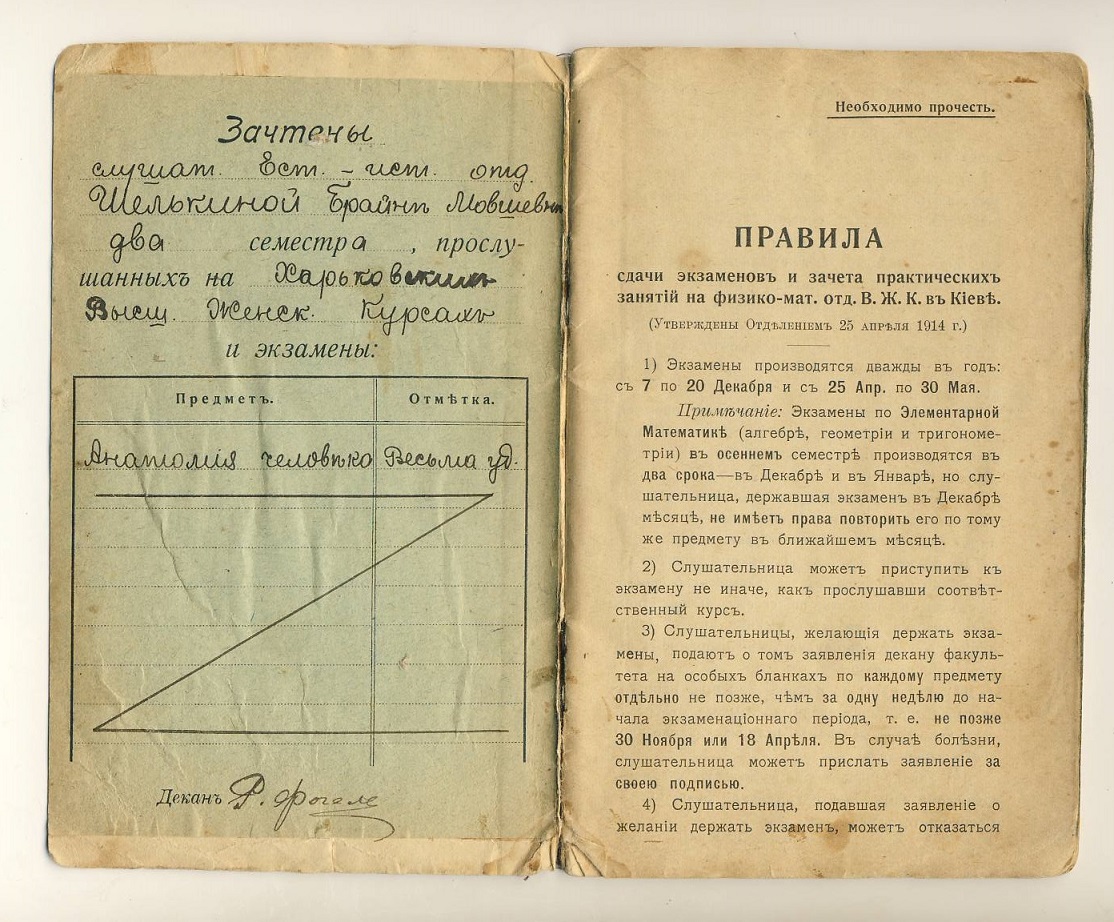 Зачтены
слушат. Ест. - ист. отд.
Шелькиной Брайнѣ Мовшевнѣ
два семестра, прослу-
шанныхъ на Харьковскихъ
Высш. Женск. Курсахъ
и экзамены:
Предметъ. Отмѣтка.
Анатомия человѣка Весьма уд.
Деканъ Р. Фогель
Необходимо прочесть.
ПРАВИЛА
сдачи экзаменовъ и зачета практическихъ
занятій на физико-мат. отд. В. Ж. К. въ Кіевѣ.
(Утверждены Отдѣленіемъ 25 апрѣля 1914 г.)
1) Экзамены производятся дважды въ годъ:
съ 7 по 20 Декабря и съ 25 Апр. по 30 Мая.
Примѣчаніе: Экзамены по Элементарной
Математикѣ (алгебрѣ, геометріи и тригономе-
тріи) въ осеннемъ семестрѣ производятся въ
два срока—въ Декабрѣ и въ Январѣ, но слу-
шательница, державшая экзаменъ въ Декабрѣ
мѣсяцѣ, не имѣетъ права повторить его по тому
же предмету въ ближайшемъ мѣсяцѣ.
2) Слушательница можетъ приступить къ
экзамену не иначе, какъ прослушавши соотвѣт-
ственный курсъ.
3) Слушательницы, желающія держать экза-
мены, подаютъ о томъ заявленія декану факуль-
тета на особыхъ бланкахъ по каждому предмету
отдѣльно не позже, чѣмъ за одну недѣлю до на-
чала экзаменаціоннаго періода, т. е. не позже
30 Ноября или 18 Апрѣля. Въ случаѣ болѣзни,
слушательница можетъ прислать заявленіе за
своею подписью.
4) Слушательница, подавшая заявленіе о
желаніи держать экзаменъ, можетъ отказаться